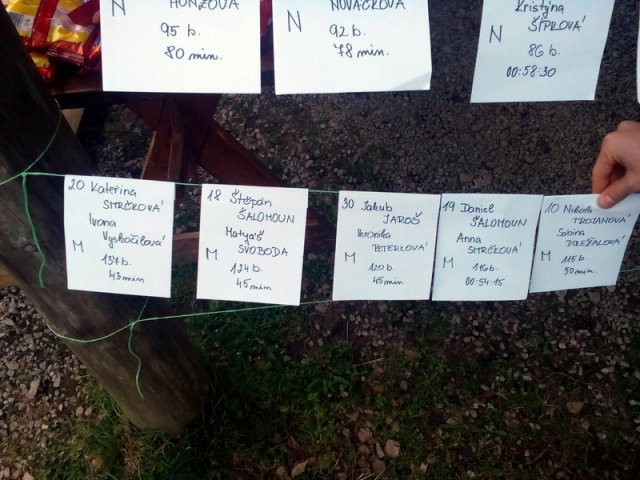 HONZOVÁ
N
95 b.
80 min.
NOVÁČKOVÁ
N
92 b.
78 min.
Kristýna
ŠÍPKOVÁ
N
86 b.
00:58:30
20 Kateřina
SMRČKOVÁ
Ivona
Vyskočilová
M
137 b.
43 min
18 Štěpán
ŠALOMOUN
Matyáš
SVOBODA
M
124 b.
45 min
30 Jakub
JAROŠ
Veronika
PETERKOVÁ
M
120 b.
45 min
19 Daniel
ŠALOMOUN
Anna
SMRČKOVÁ
M
116 b.
00:54:15
10 Nikola
TROJANOVÁ
Sabina
DOLEŽALOVÁ
M
115 b.
50 min